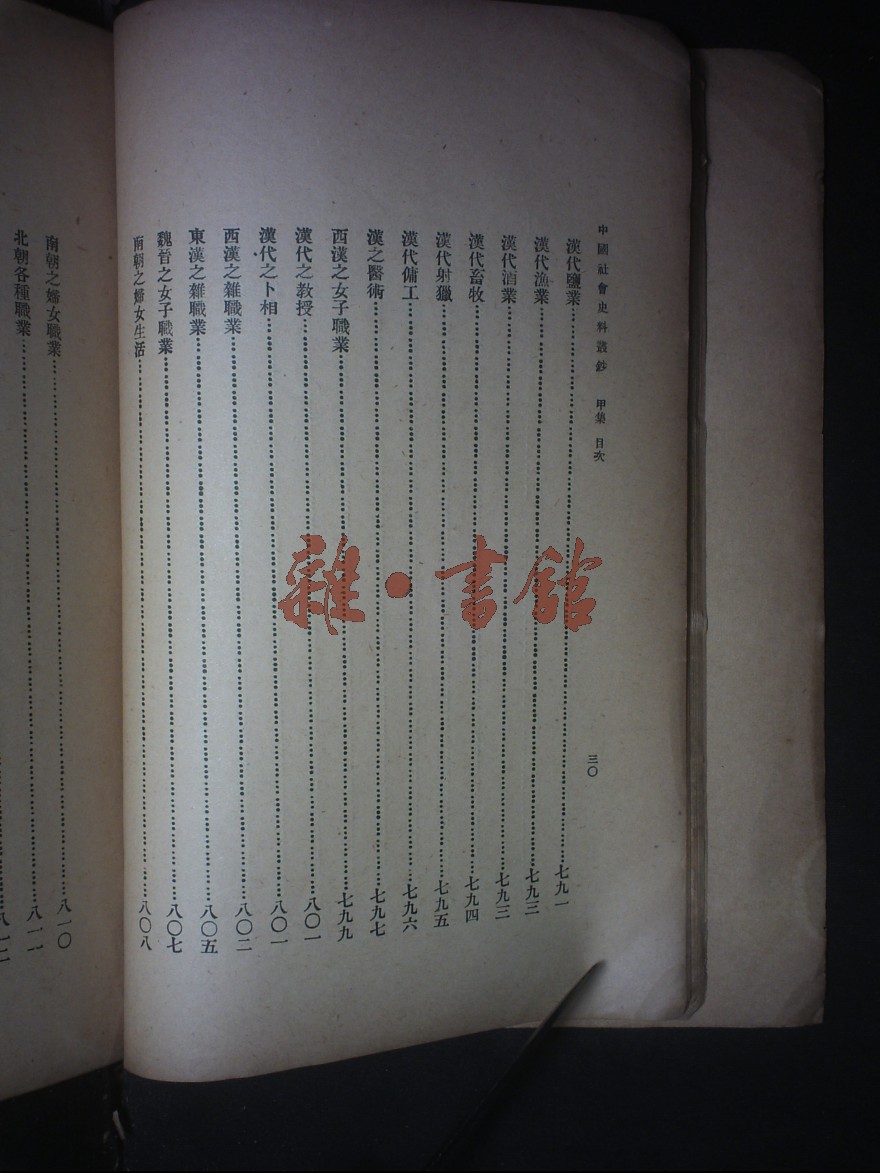 中國社會史料叢鈔 甲集 目次
三〇
漢代鹽業……七九一
漢代漁業……七九三
漢代酒業……七九三
漢代畜牧……七九四
漢代射獵……七九五
漢代傭工……七九六
漢之醫術……七九七
西漢之女子職業……七九九
漢代之教授……八〇一
漢代之卜相……八〇一
西漢之雜職業……八〇二
東漢之雜職業……八〇五
魏晉之女子職業……八〇七
南朝之婦女生活……八〇八
南朝之婦女職業……八一〇
北朝各種職業……八一一
八一二
雜·書館